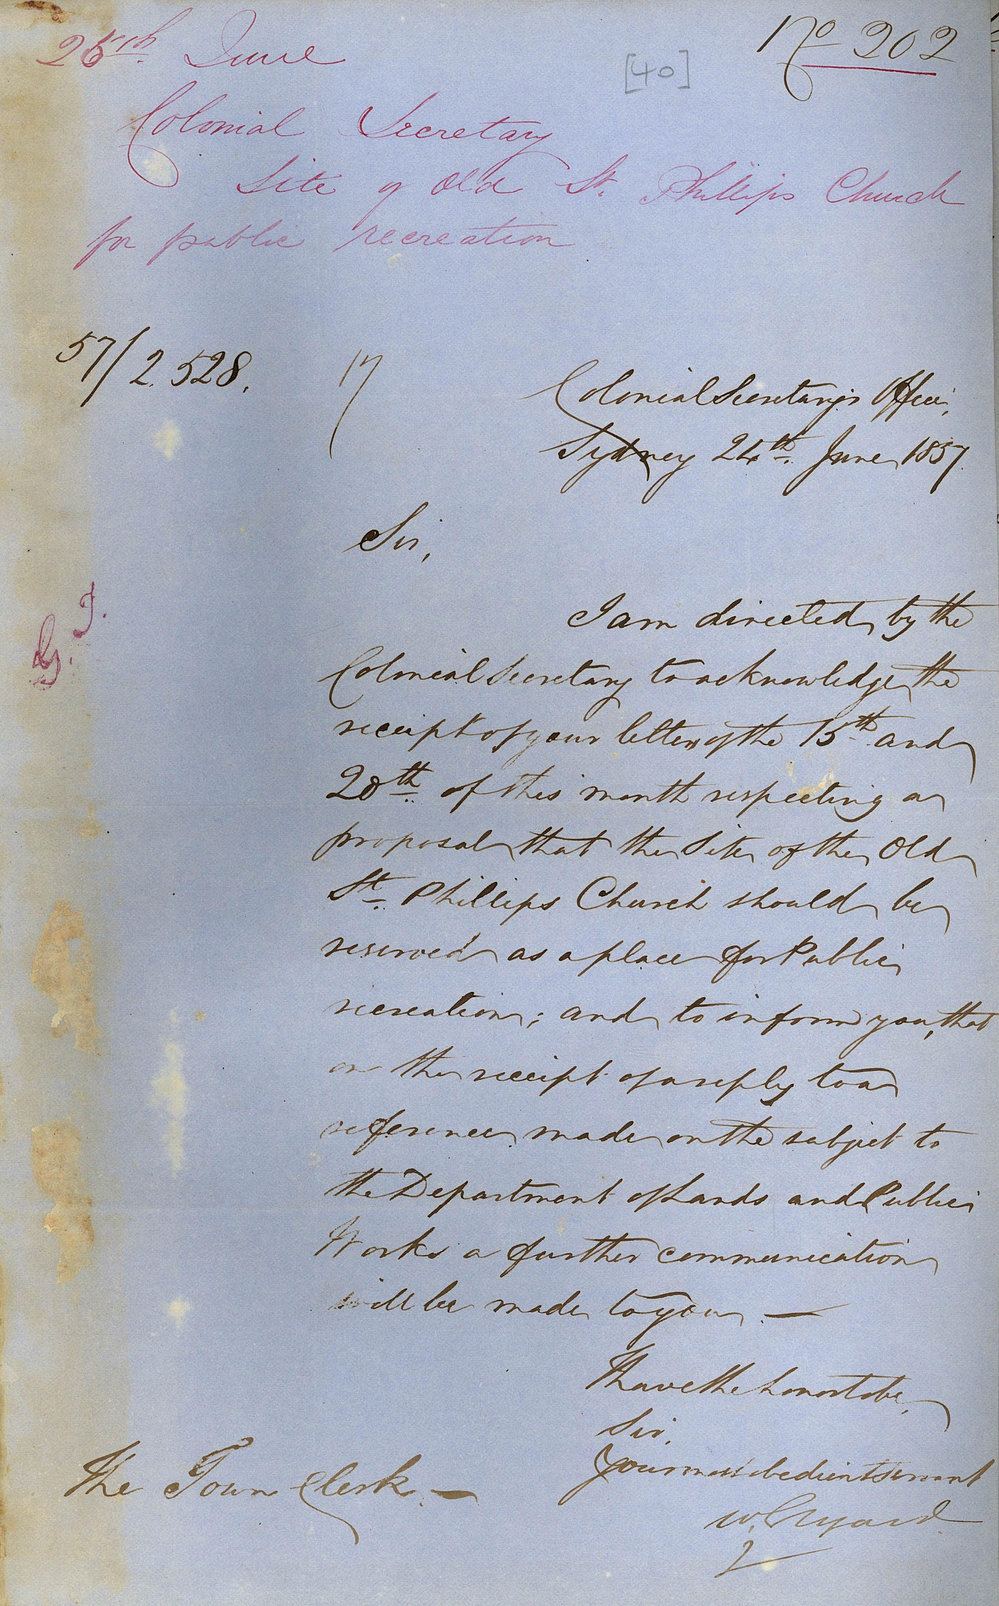 25th June
No 202
[40]
Colonial Secretary
Site of Old St. Phillips Church
for public recreation
57/2528.
17
Colonial Secretary's Office,
Sydney 24th June 1857
Sir,
I am directed by the
Colonial Secretary to acknowledge the
receipt of your letters of the 15th and
20th of this month respecting a
proposal that the Site of the Old
St. Phillips Church should be
reserved as a place for Public
recreation; and to inform you, that
on the receipt of a reply to a
reference made on the subject to
the Department of Lands and Public
Works a further communication
will be made to you. —
I have the honor to be,
Sir,
Your most obedient Servant
W. Elyard
The Town Clerk. —